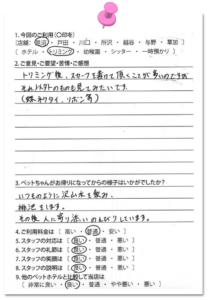 1.今回のご利用(○印を)
[店舗: 豊沼・戸田・川口・所沢・越谷・与野・草加]
[ホテル・トリミング・幼稚園・シッター・一時預かり]
2.ご意見・ご要望・苦情・ご感想
トリミング後、スカーフを着けて頂くことが多いのですが
それ以外のものも見てみたいです。
(蝶ネクタイ、リボン等)
3.ペットちゃんがお帰りになってからの様子はいかがでしたか?
いつものように沢山水を飲み、
排泄をします。
その後人に寄り添いのんびりしています。
4.ご利用料金は [高い・普通・安い]
5.スタッフの対応は [良い・普通・悪い]
6.スタッフの笑顔は [良い・普通・悪い]
7.スタッフの礼節は [良い・普通・悪い]
8.スタッフの説明は [良い・普通・悪い]
9.他のペットホテルと比較して当店は
[非常に良い・良い・普通・やや悪い・悪い]